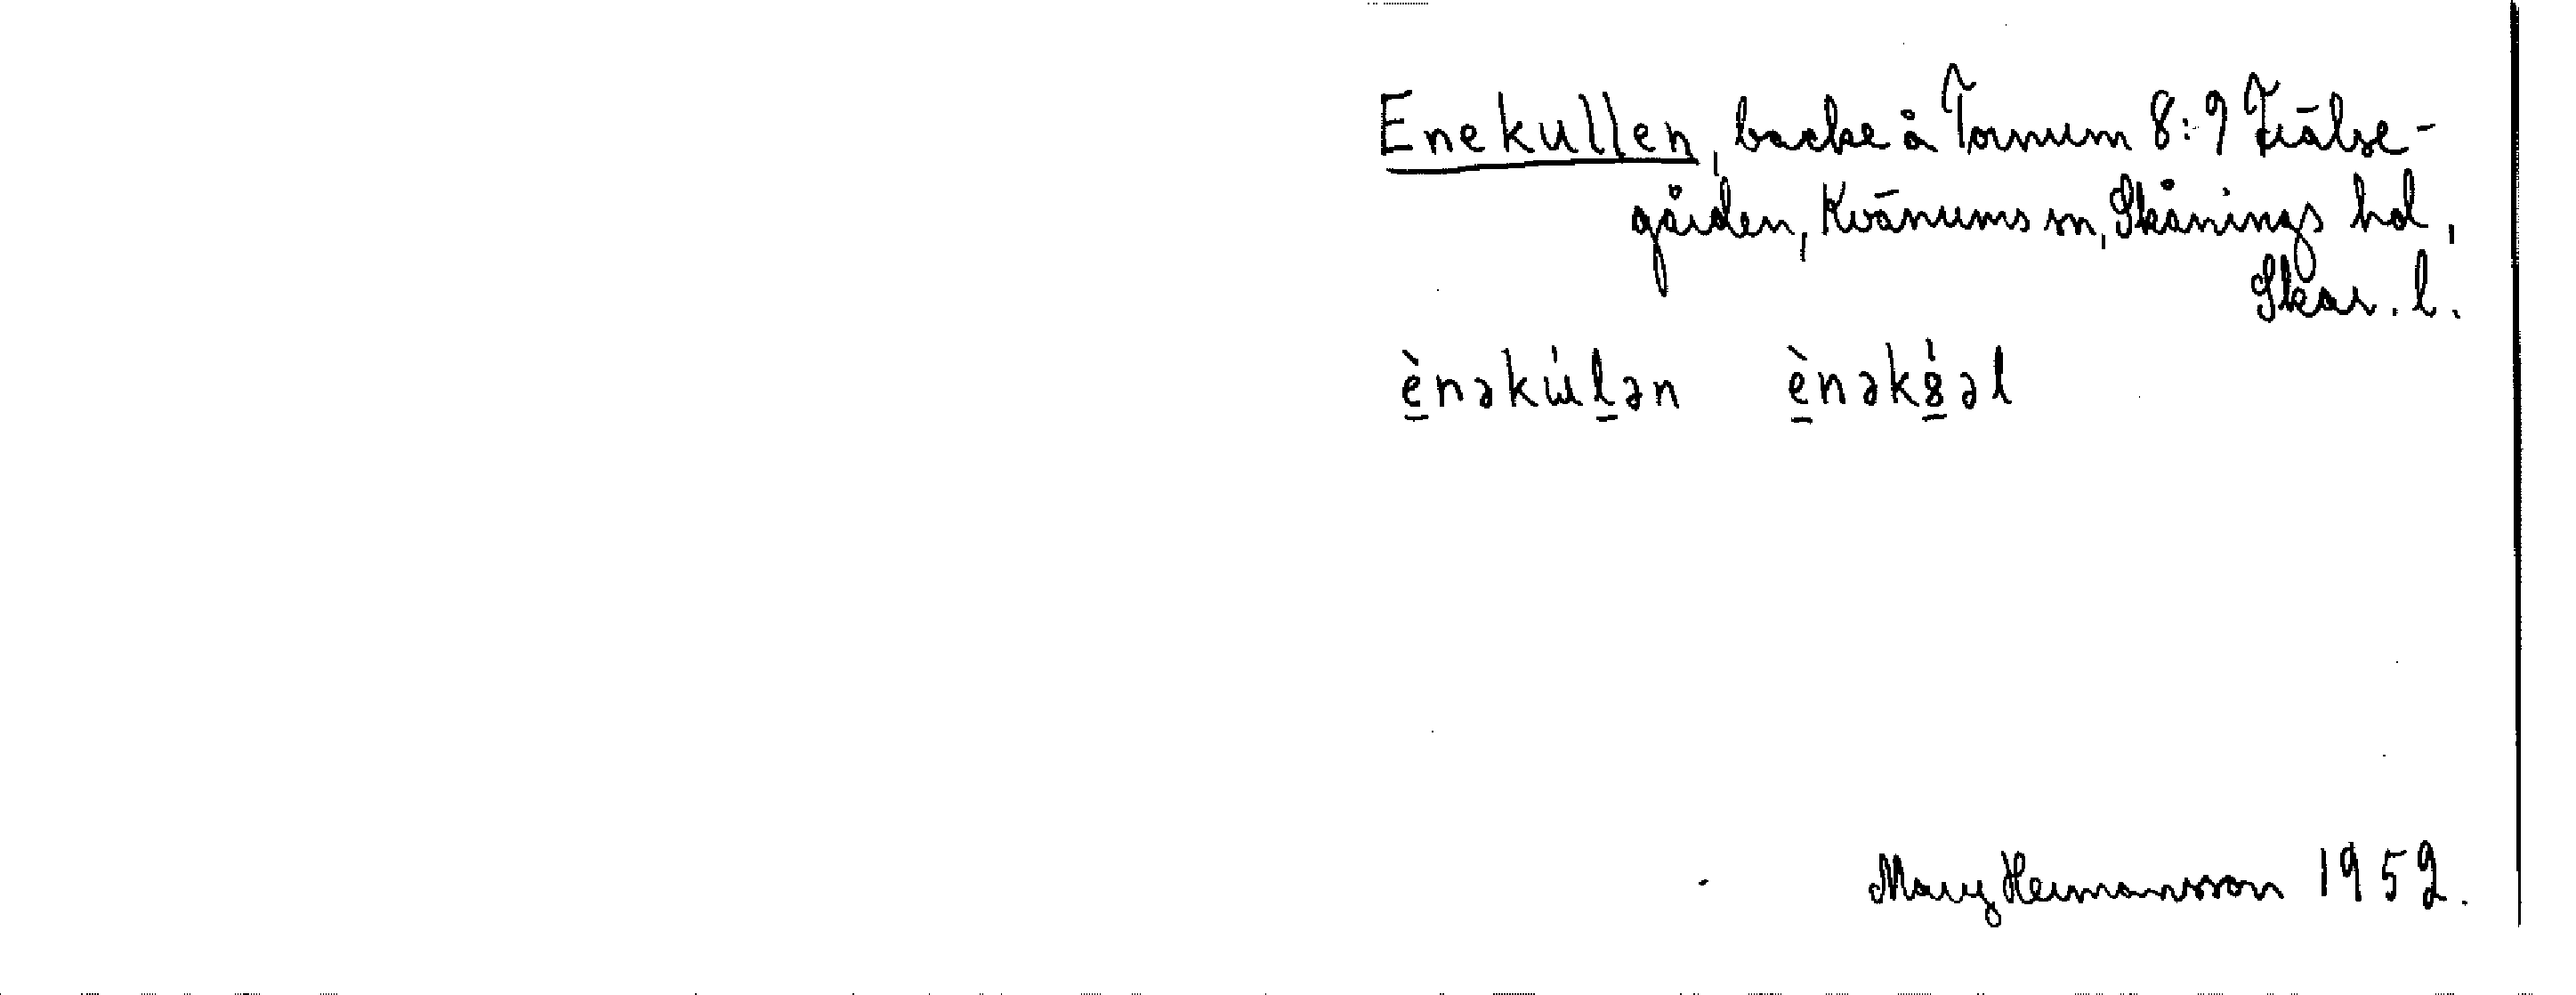 Enekullen, backe å Tornum 8:9 Frälse-
gården, Kvänums sn, Skånings hd,
Skar. l.
ènəkúlən ènək8́əl
Mary Hermansson 1952.